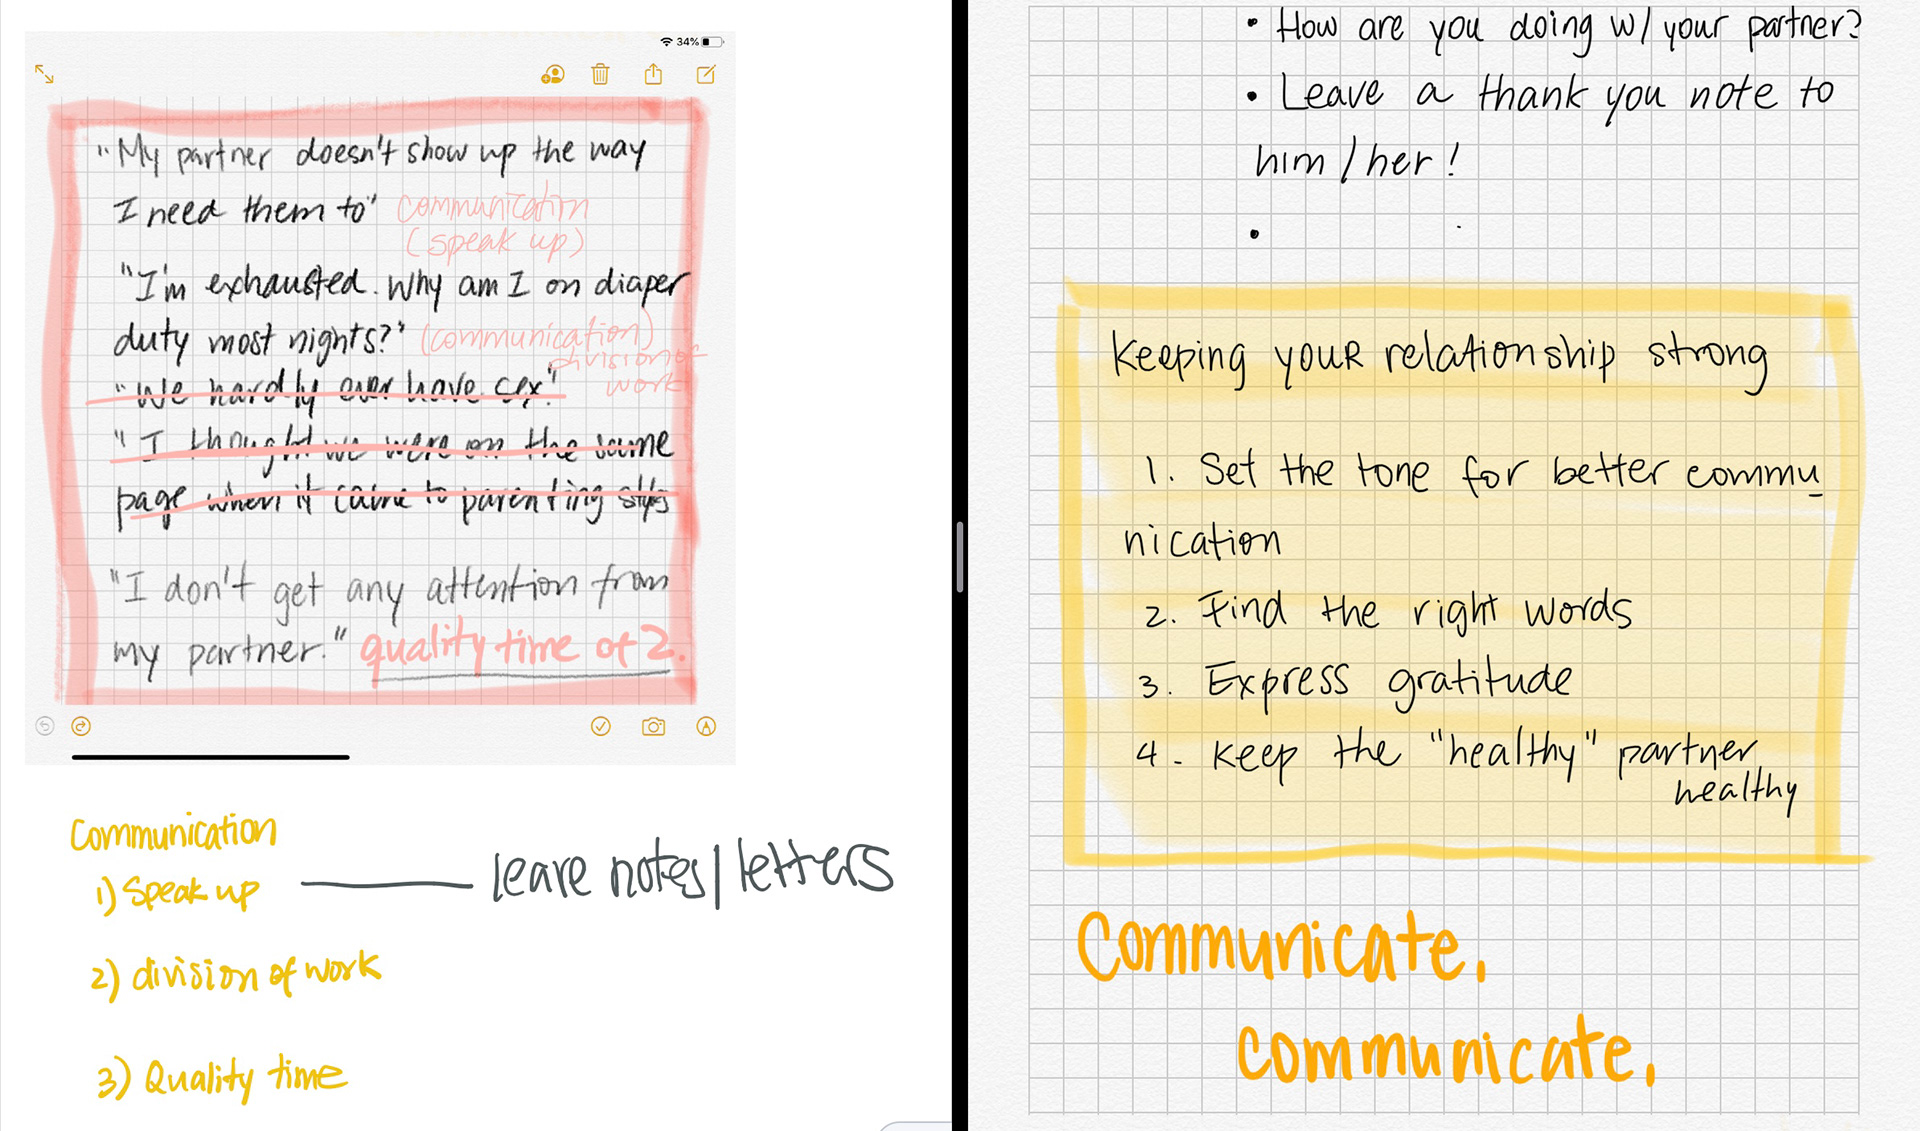 34%
"My partner doesn't show up the way
I need them to" communication
(speak up)
"I'm exhausted. Why am I on diaper
duty most nights?" (communication)
division of
work
"We hardly ever have sex."
"I thought we were on the same
page when it came to parenting styles
"I don't get any attention from
my partner." quality time of 2.
Communication
1) Speak up — leave notes/letters
2) division of work
3) Quality time
• How are you doing w/ your partner?
• Leave a thank you note to
him/her!
•
Keeping your relationship strong
1. Set the tone for better commu
nication
2. Find the right words
3. Express gratitude
4. Keep the "healthy" partner
healthy
Communicate.
Communicate.